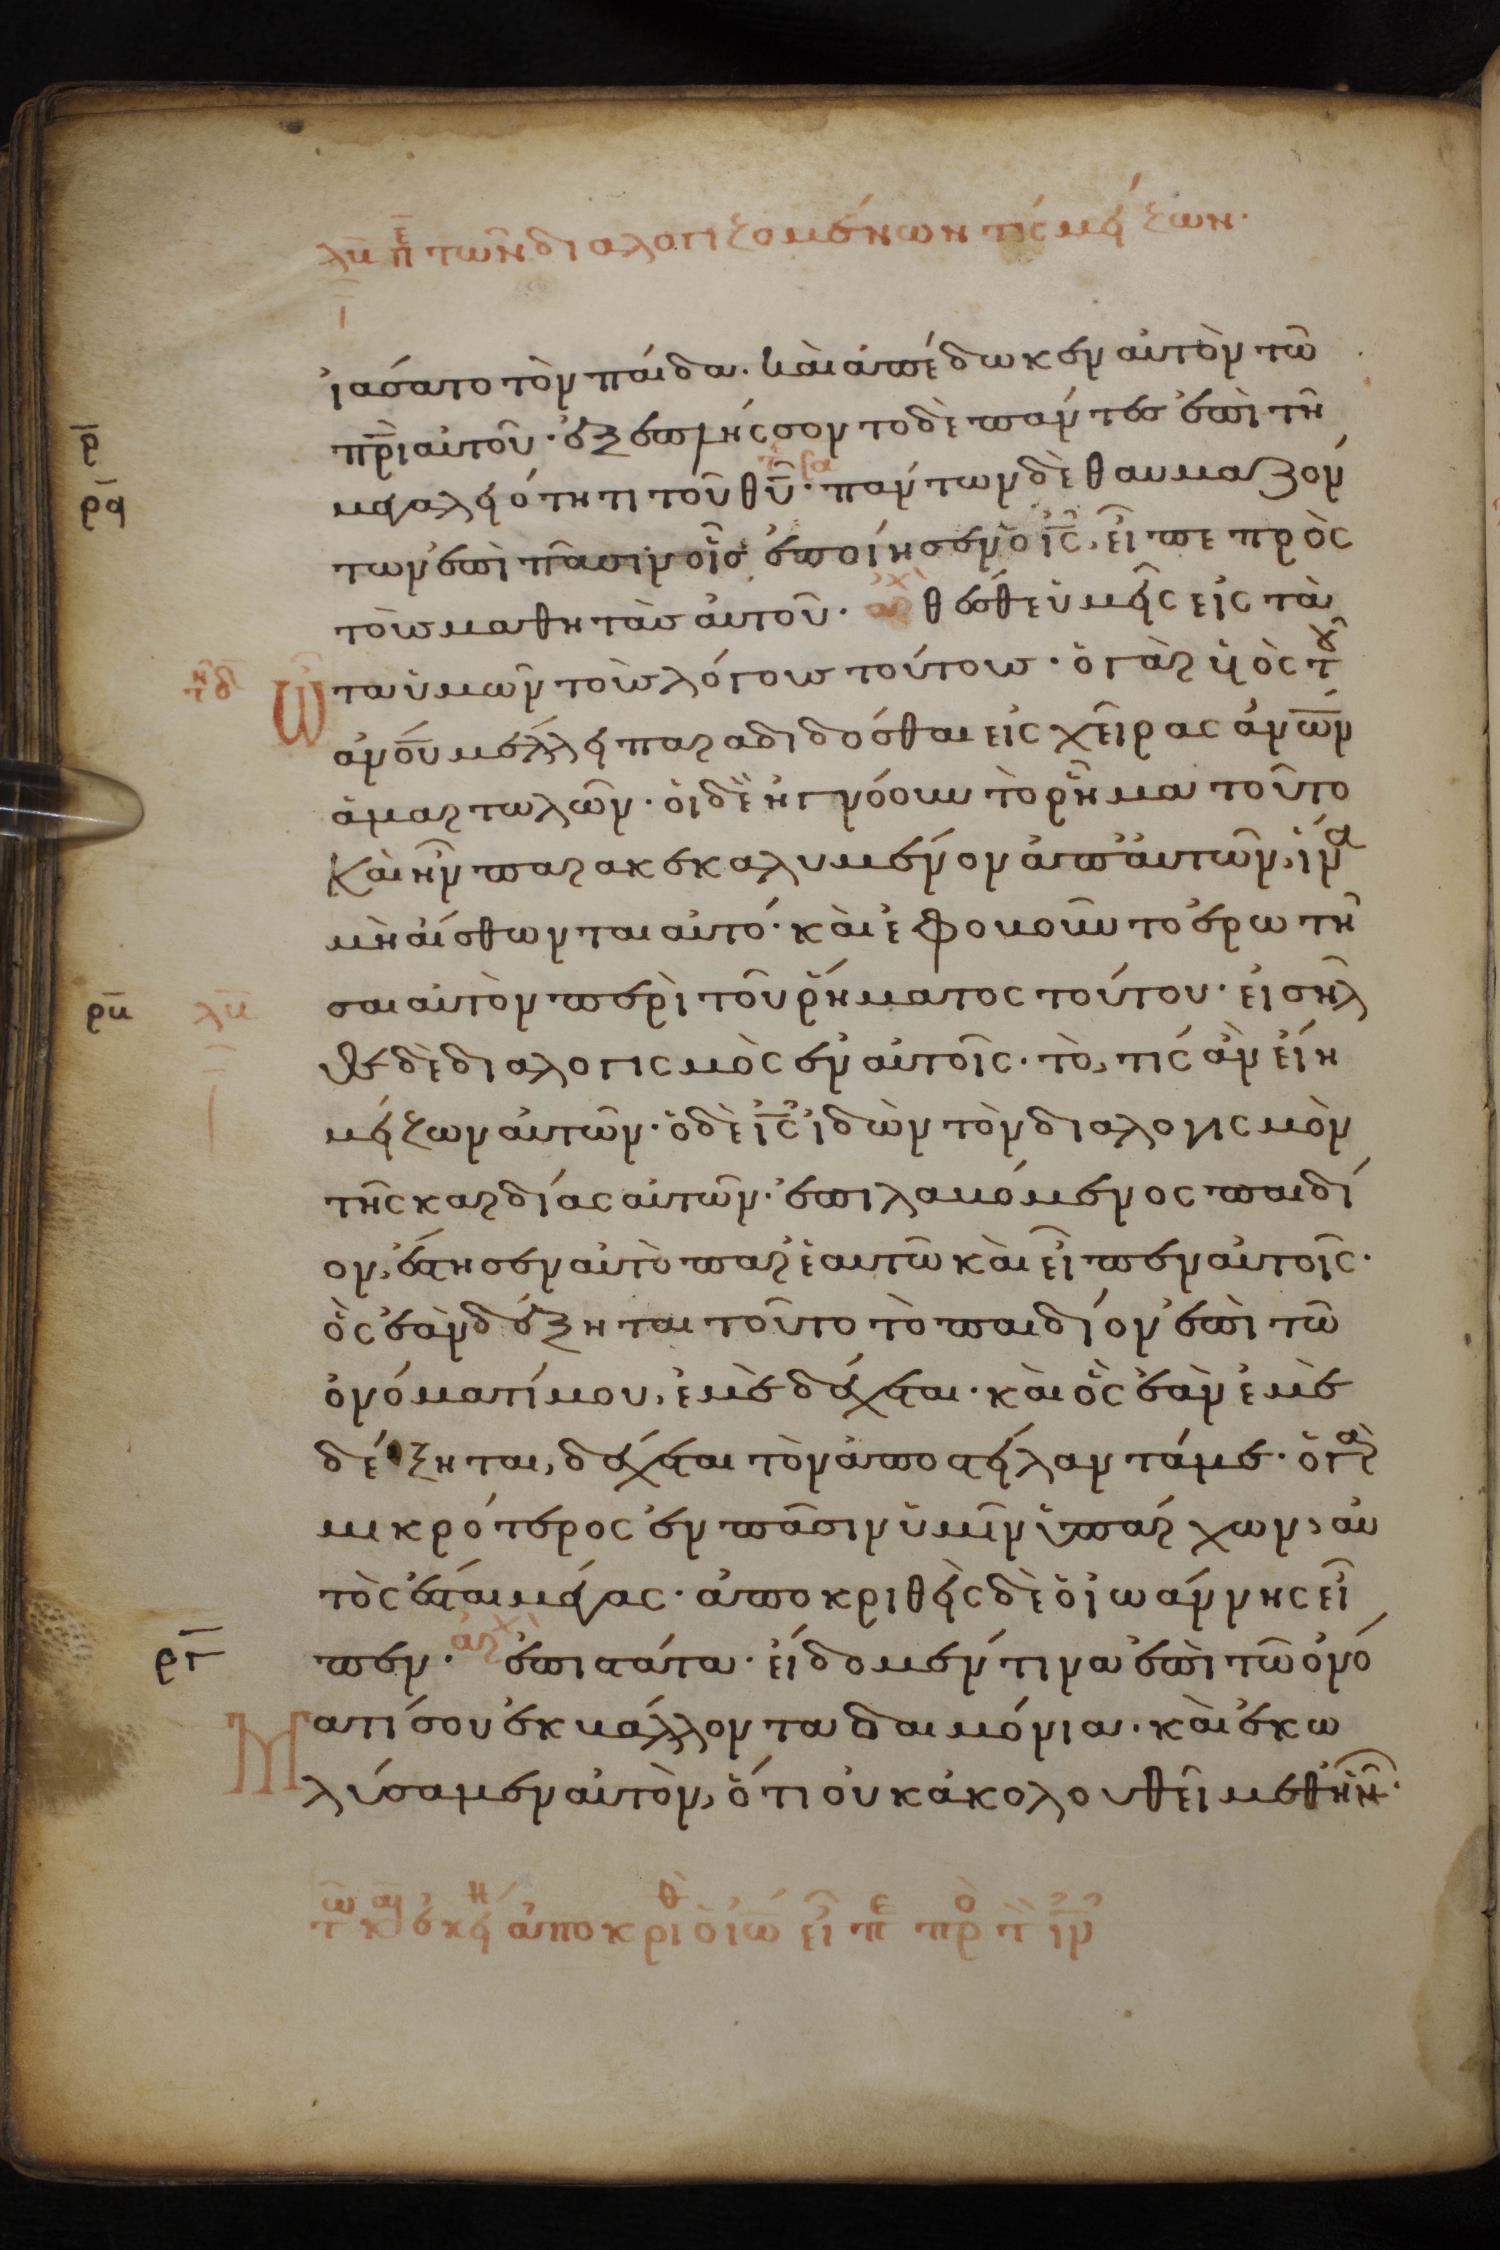 λβ πε τῶν διαλογιζομένων τίς μείζων·
ἰάσατο τὸν παῖδα. καὶ ἀπέδωκεν αὐτὸν τῶ
ρ
π̅ρ̅ι̅ αὐτοῦ· ἐξεπλήσσοντο δὲ πάντες ἐπὶ τῆ
ρα
μεγαλειότητι τοῦ θ̅υ̅· πάντων δὲ θαυμαζόν
των ἐπὶ πᾶσιν οἷς ἐποίησεν ὁ ι̅ς̅, εἶπε πρὸς
τοὺς μαθητὰς αὐτοῦ· ἀρχ θέσθε ὑμεῖς εἰς τὰ
Ὦ τα ὑμῶν τοὺς λόγους τούτους· ὁ γὰρ υἱὸς τοῦ
α̅ν̅ο̅υ̅ μέλλει παραδίδοσθαι εἰς χεῖρας α̅ν̅ω̅ν̅
ἁμαρτωλῶν· οἱ δὲ ἠγνόουν τὸ ῥῆμα τοῦτο
καὶ ἦν παρακεκαλυμένον ἀπ' αὐτῶν, ἵνα
μὴ αἴσθωνται αὐτό· καὶ ἐφοβοῦντο ἐρωτῆ
σαι αὐτὸν περὶ τοῦ ῥήματος τούτου· εἰσῆλ
ρβ λβ
θε δὲ διαλογισμὸς ἐν αὐτοῖς· τὸ, τίς ἂν εἴη
μείζων αὐτῶν· ὁ δὲ ι̅ς̅ ἰδὼν τὸν διαλογισμὸν
τῆς καρδίας αὐτῶν· ἐπιλαβόμενος παιδί
ον, ἔστησεν αὐτὸ παρ' ἑαυτῶ καὶ εἶπεν αὐτοῖς·
ὃς ἐὰν δέξηται τοῦτο τὸ παιδίον ἐπὶ τῶ
ὀνόματί μου, ἐμὲ δέχεται· καὶ ὃς ἐὰν ἐμὲ
δέξηται, δέχεται τὸν ἀποστείλαντά με· ὁ γὰρ
μικρότερος ἐν πᾶσιν ὑμῖν ὑπάρχων, αὐ
τὸς ἔσται μέγας· ἀποκριθεὶς δὲ ὁ ἰωάννης εἶ
ργ
πεν· ἀρχ ἐπιστάτα· εἴδομέν τινα ἐπὶ τῶ ὀνό
Ματί σου ἐκβάλλοντα δαιμόνια· καὶ ἐκω
λύσαμεν αὐτὸν, ὅτι οὐκ ἀκολουθεῖ μεθ' ἡμῶν·
τῶ καιρῶ ἐκείν ἀποκριθ ὁ ἰω εἶπε πρὸ τὸν ι̅ν̅